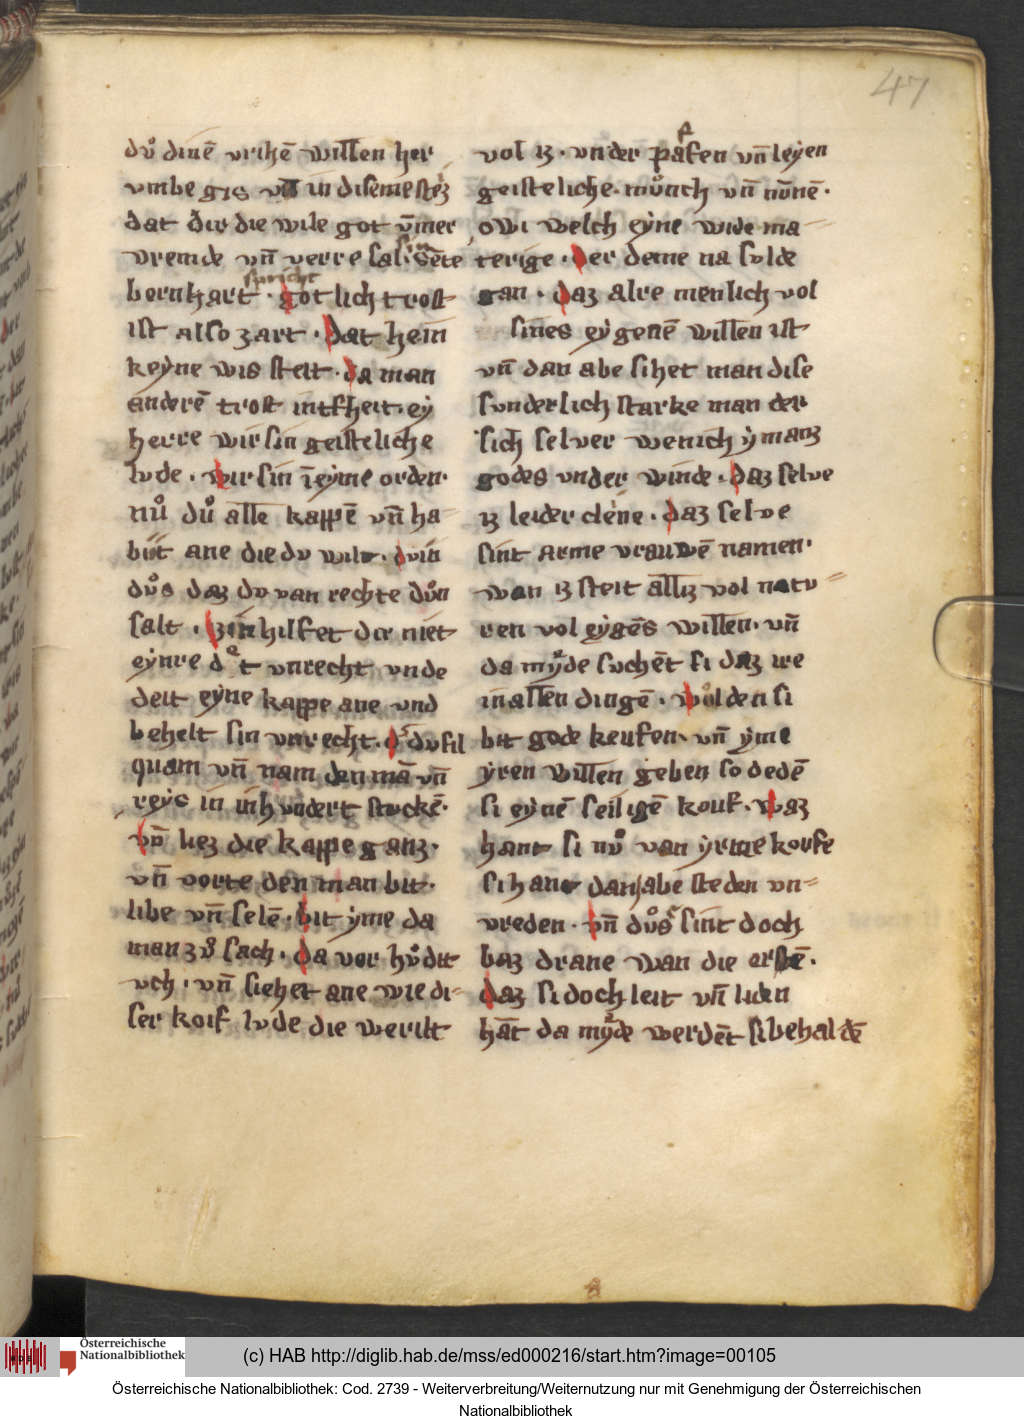 47
duͦ dinē vrihē willen her
vmbe gis vn̄ in disemestez
dat dir die wile got ȳmer
vremde vn̄ verre sal si. sēte
spricht
bernhart. got lich trost
ist also zart. dat hein
keyne wis steit. da man
anderē trost intfheit. ey
herre wir sin geisteliche
lvde. wir sin ī eyme orden.
nuͦ duͦ alle kappē vn̄ ha-
bit ane die dv wilt.
duͦs daz dv van rechte duͦn
salt. hilfet die niet
eynre det vnrecht vnde
deit eyne kappe ane vnd
behelt sin vnrecht. dusil
quam vn̄ nam den mā vn̄
reys in in hvndert stvckē.
vn̄ liez die kappe ganz.
vn̄ vorte den man bit.
libe vn̄ selē. bit yme da
man zuͦ sach. da vor huͦdit
vch. vn̄ siehet ane wie di-
ser koif lvde die werilt
vol iz. vnder pafen vn̄ leyen
geisteliche. muͦnch vn̄ nūnē.
owi welch eyne wide ma-
terige. Der deme na solde
gan. daz alre menlich vol
sines eygenē willen ist
vn̄ dan abe sihet man dise
svnderlich starke man der
sich selver wenich ymanz
godes vnder winde. daz selve
iz leider cleine. daz selve
sint arme vrauwē namen.
wan iz steit alliz vol natv-
ren vol eygēs willen. vn̄
da myde svchēt si daz ire
in allen dingē. woͤlden si
bit gode keufen. vn̄ yme
yren willen geben so dedē
si eynē seiligē kouf. waz
hant si nuͦ van yrme koufe
si hant dan abe steden vn-
vreden. vn̄ duͦse sint doch
baz drane wan die erstē.
daz si doch leit vn̄ liden
hāt da myde werdēt si behaldē
(c) HAB http://diglib.hab.de/mss/ed000216/start.htm?image=00105
Österreichische
Nationalbibliothek
Österreichische Nationalbibliothek: Cod. 2739 - Weiterverbreitung/Weiternutzung nur mit Genehmigung der Österreichischen
Nationalbibliothek